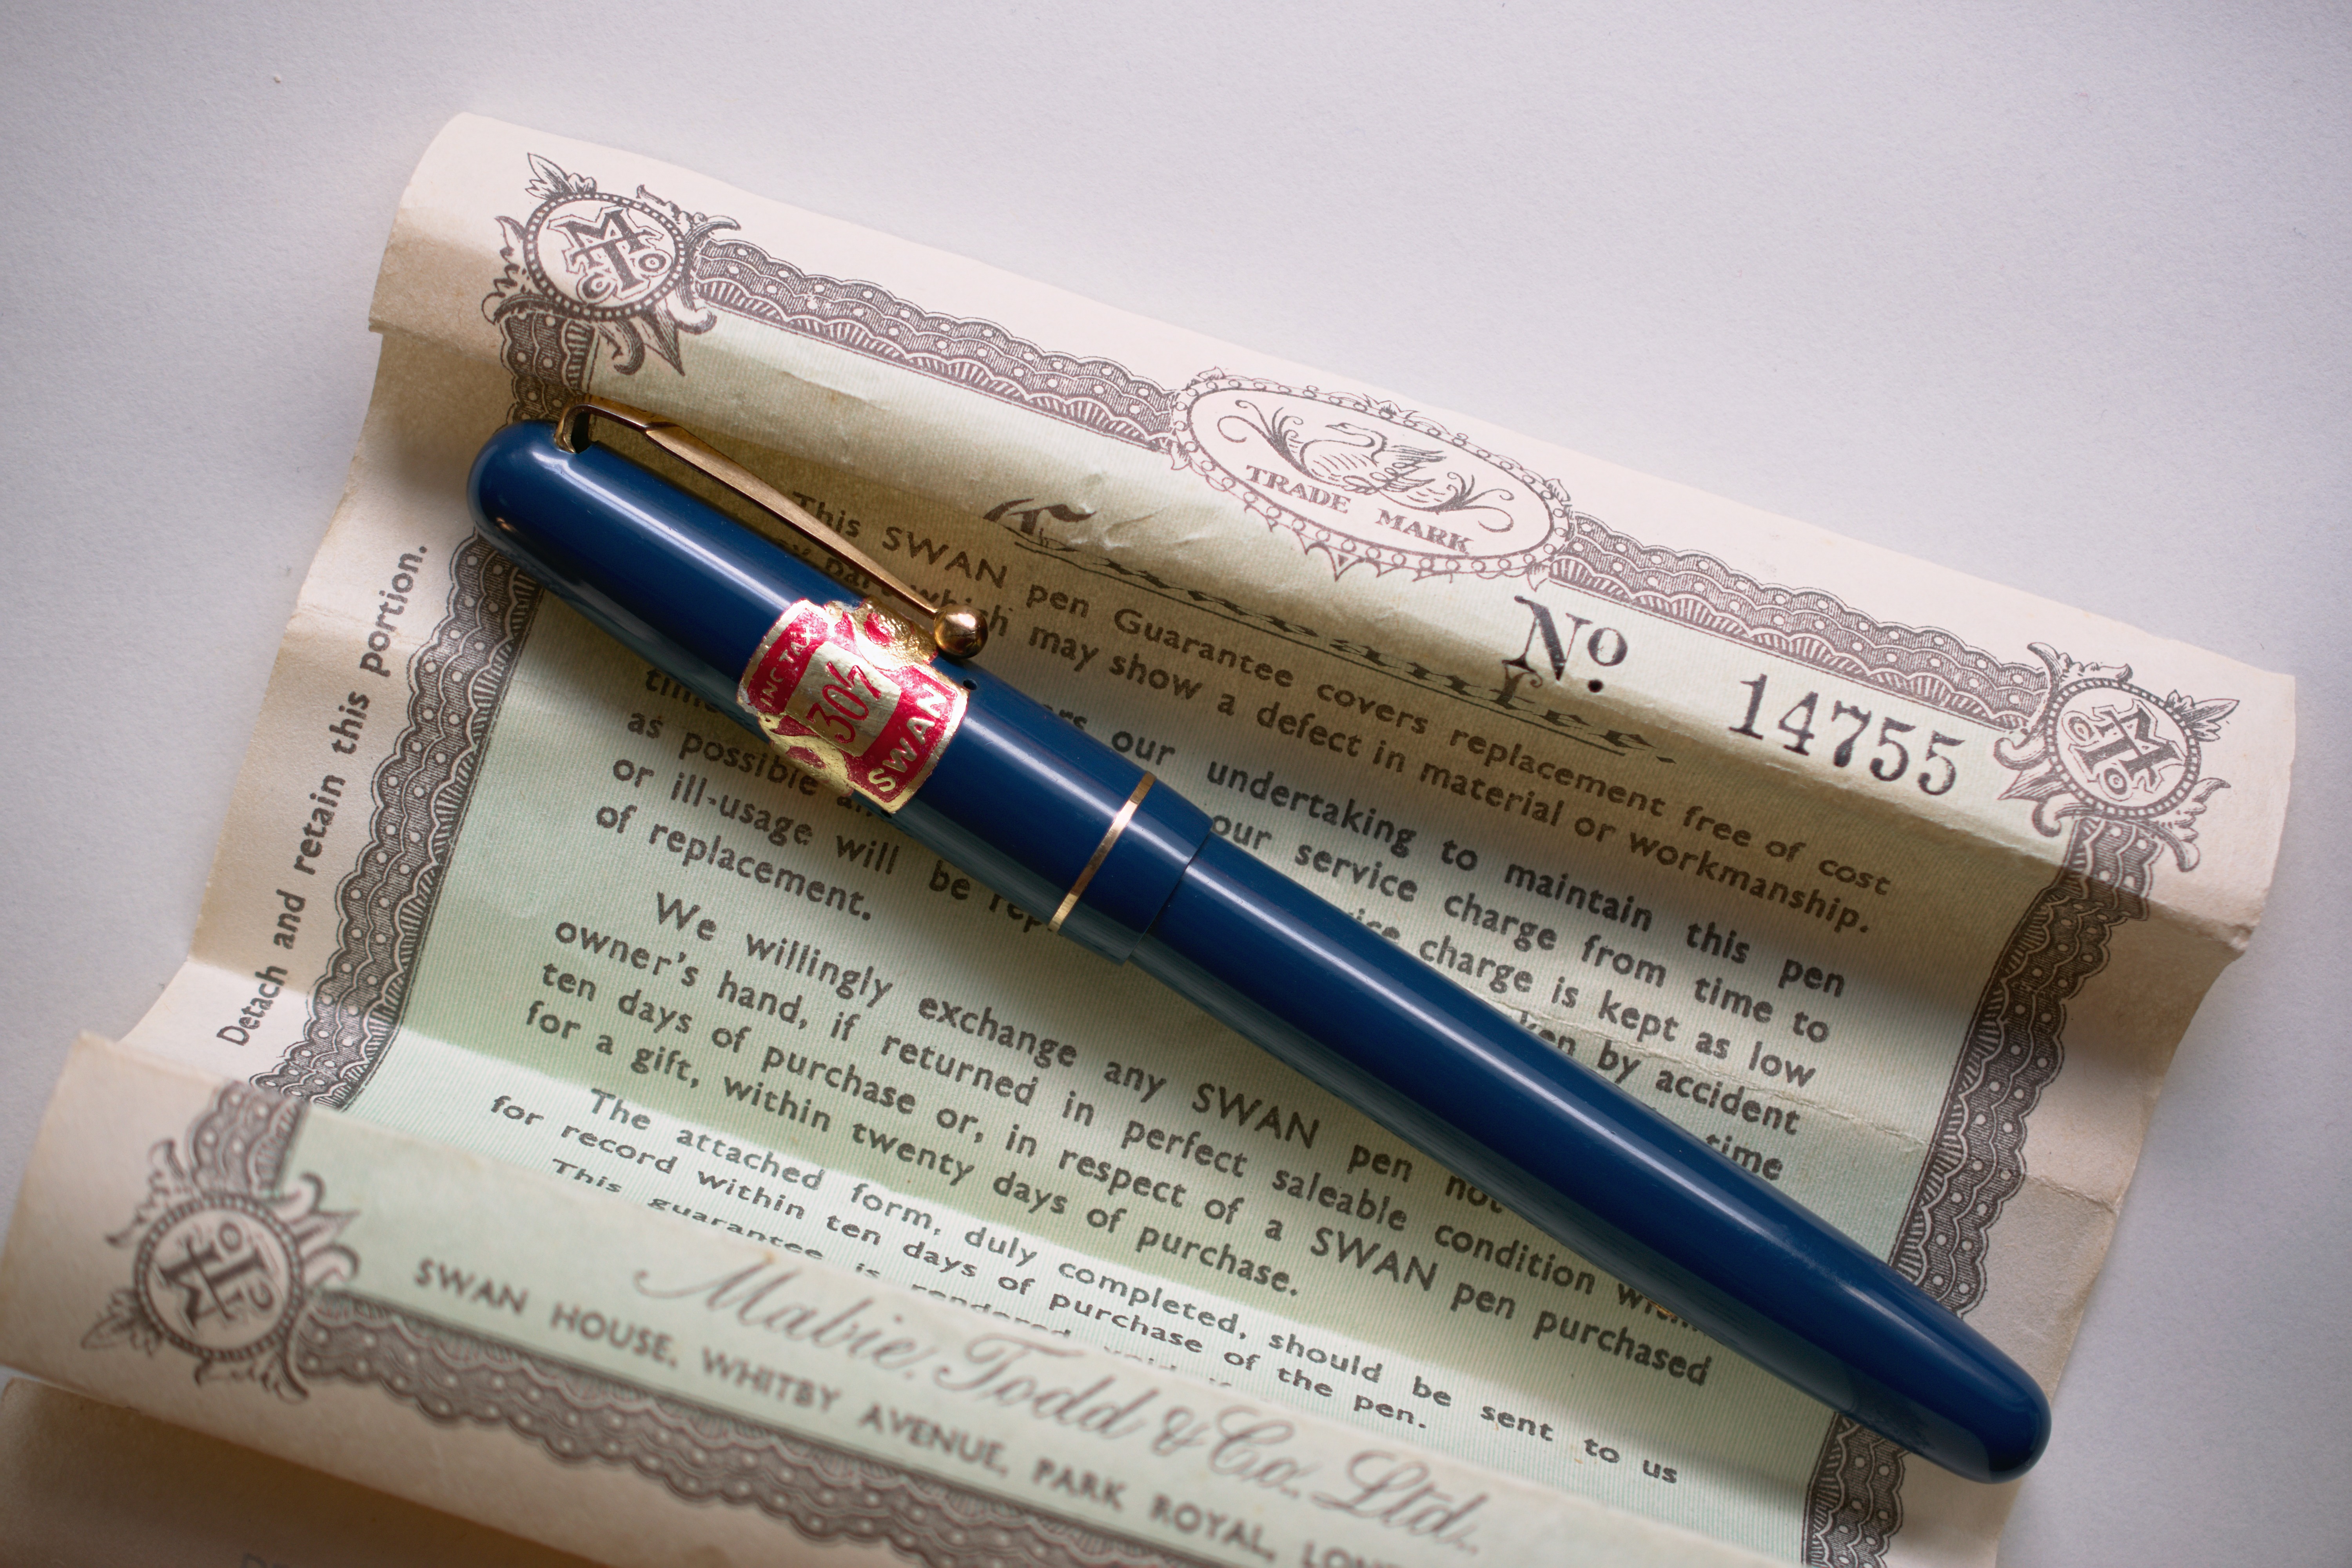 TRADE MARK
Guarantee.
No 14755
This SWAN pen Guarantee covers replacement free of cost
any part which may show a defect in material or workmanship.
our undertaking to maintain this pen
our service charge from time to
time charge is kept as low
as possible by accident
or ill-usage will be time
of replacement.
We willingly exchange any SWAN pen not
owner's hand, if returned in perfect saleable condition within
ten days of purchase or, in respect of a SWAN pen purchased
for a gift, within twenty days of purchase.
The attached form, duly completed, should be sent to us
for record within ten days of purchase of the pen.
This guarantee is rendered void
Mabie, Todd & Co. Ltd.
SWAN HOUSE, WHITBY AVENUE, PARK ROYAL,
Detach and retain this portion.
INC TAX
30/-
SWAN